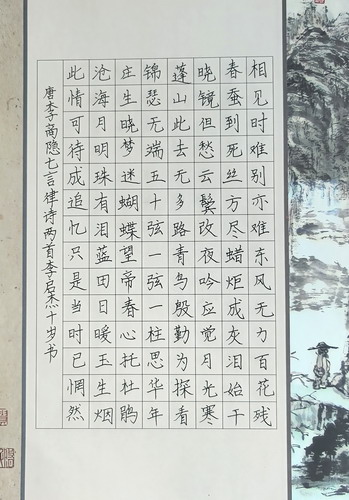 相见时难别亦难东风无力百花残
春蚕到死丝方尽蜡炬成灰泪始干
晓镜但愁云鬓改夜吟应觉月光寒
蓬山此去无多路青鸟殷勤为探看
锦瑟无端五十弦一弦一柱思华年
庄生晓梦迷蝴蝶望帝春心托杜鹃
沧海月明珠有泪蓝田日暖玉生烟
此情可待成追忆只是当时已惘然
唐李商隐七言律诗两首李启杰十岁书